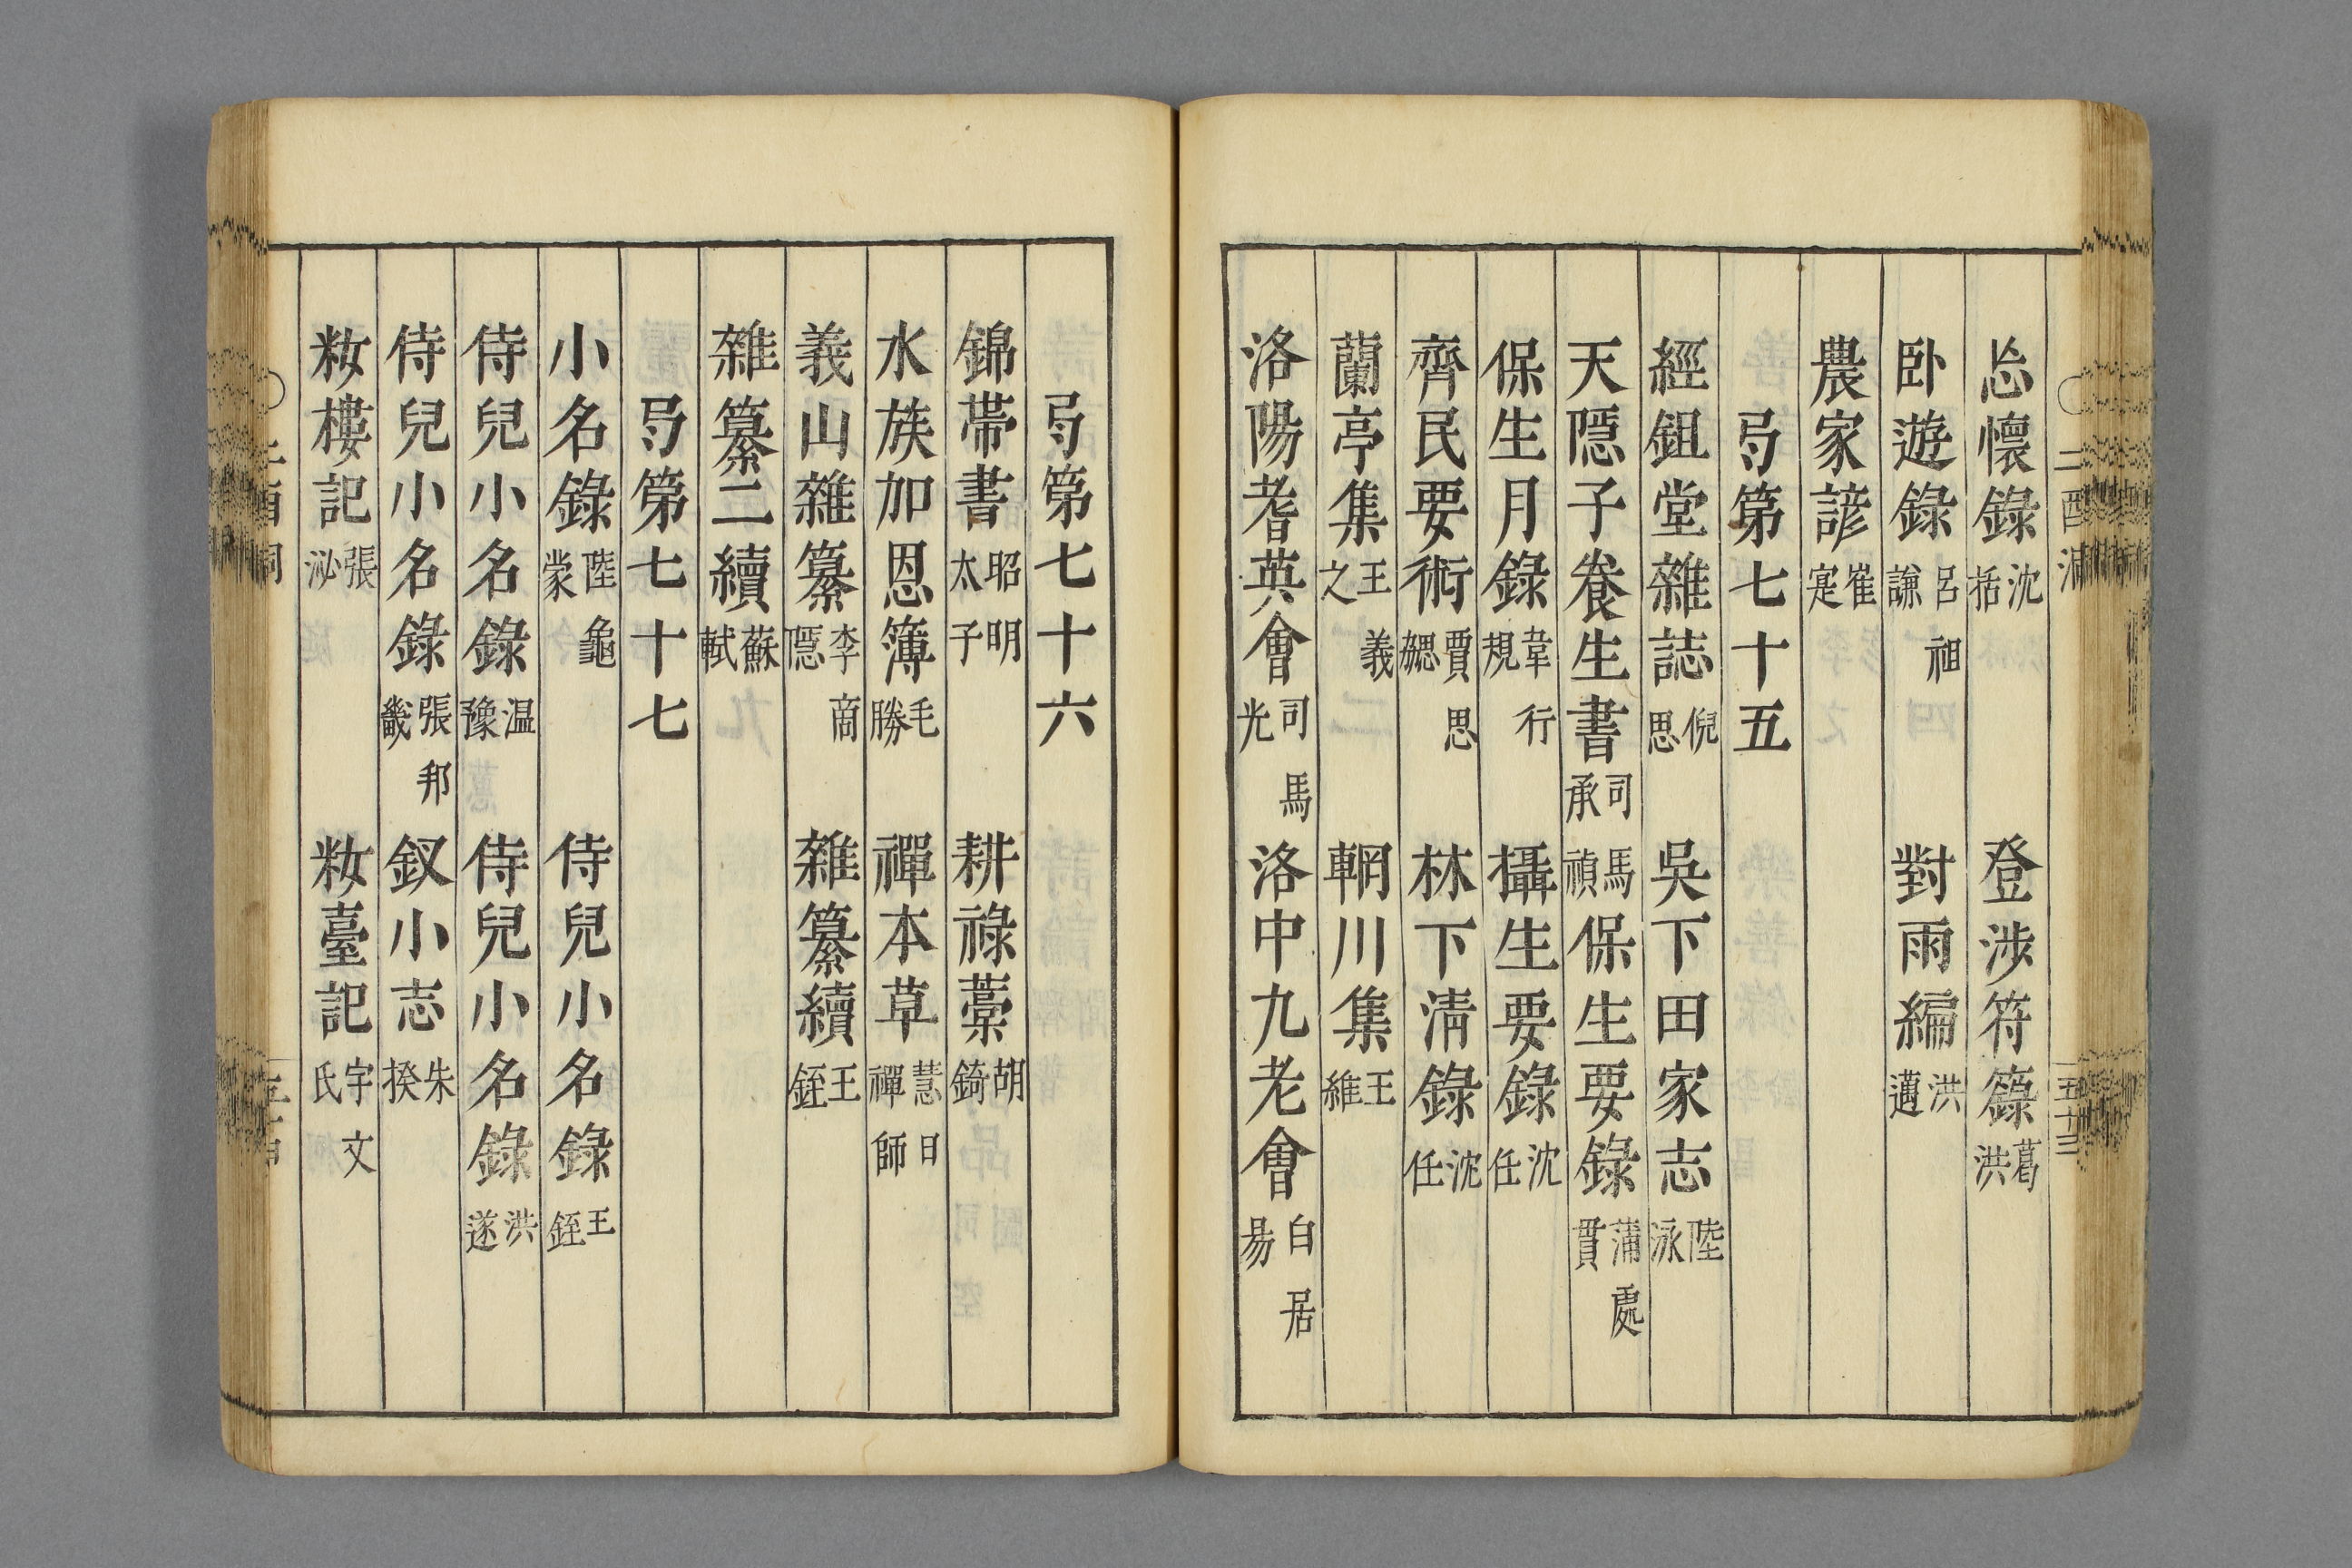 忘懷錄沈括 登涉符籙葛洪
卧遊錄呂祖謙 對雨編洪邁
農家諺崔寔
弓第七十五
經鉏堂雜誌倪思 吳下田家志陸泳
天隱子養生書司馬承禎 保生要錄蒲處貫
保生月錄韋行規 攝生要錄沈仕
齊民要術賈思勰 林下清錄沈仕
蘭亭集王羲之 輞川集王維
洛陽耆英會司馬光 洛中九老會白居易
弓第七十六
錦帶書昭明太子 耕祿藁胡錡
水族加恩簿毛勝 禪本草慧日禪師
義山雜纂李商隱 雜纂續王銍
雜纂二續蘇軾
弓第七十七
小名錄陸龜蒙 侍兒小名錄王銍
侍兒小名錄温豫 侍兒小名錄洪遂
侍兒小名錄張邦畿 釵小志朱揆
粧樓記張泌 粧臺記宇文氏